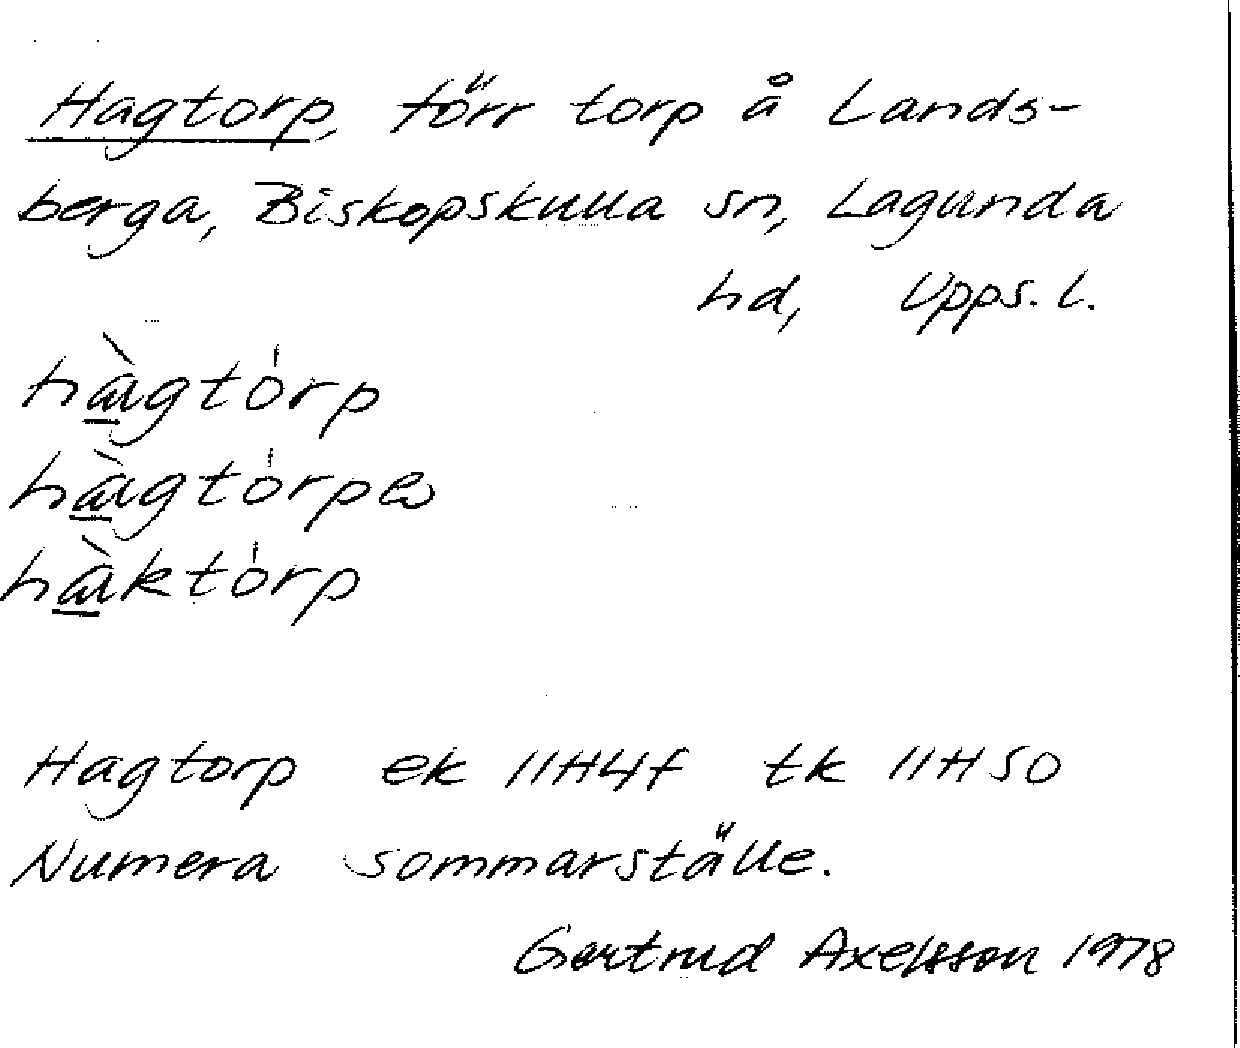 Hagtorp, förr torp å Lands-
berga, Biskopskulla sn, Lagunda
hd, Upps. l.
hàgtórp
hàgtórpa
hàktórp
Hagtorp ek 11H4f tk 11H SO
Numera sommarställe.
Gertrud Axelsson 1978